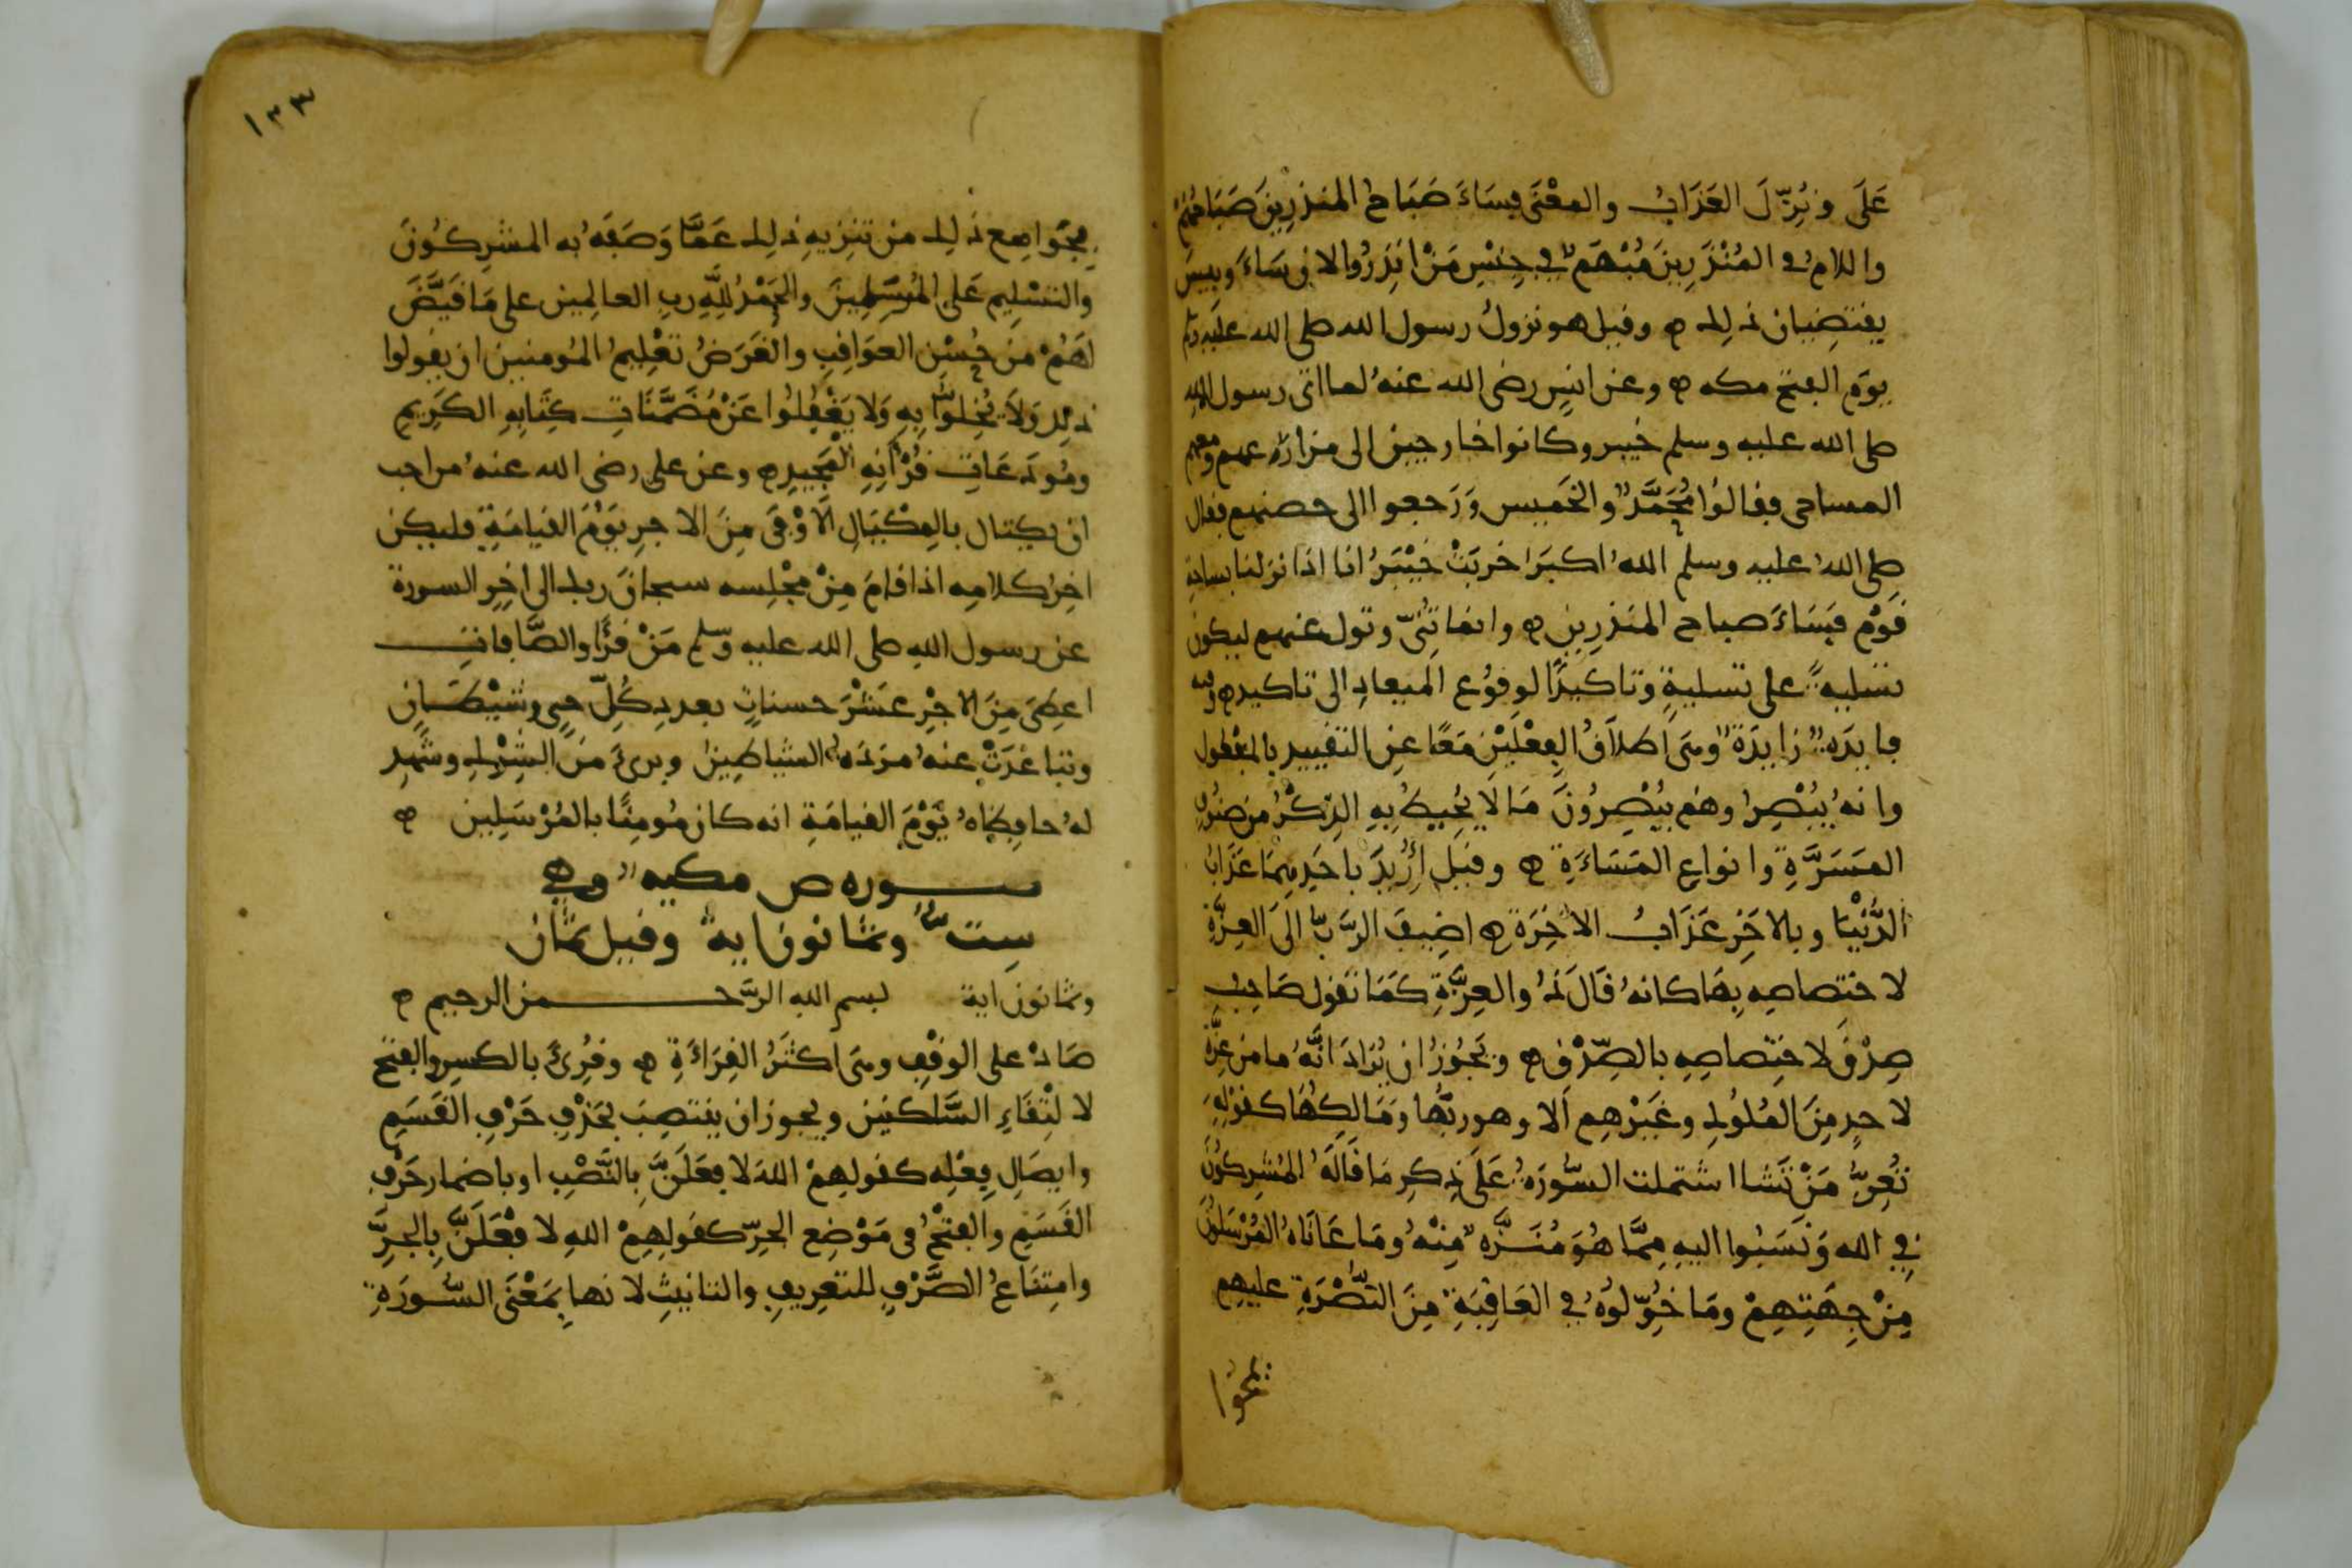 عَلَى ونُزِّلَ العَذَابُ والمعْنَى فسَاءَ صَبَاحُ المنذرِينَ صَبَاحُهُمْ
واللامُ في المُنْذَرِينَ مُبْهَمٌ في جِنْسِ مَنْ انذِرُوا لان سَاءَ وبيسَ
يقتضِيان ذلِك ٥ وقيل هو نزولُ رسول الله صلى الله عليه وسلم
يوَم الفتح مكه ٥ وعن انسٍ رضى الله عنهُ لما اتى رسول الله
صلى الله عليه وسلم خيبر وكانوا خارجين الى مزارعهم ومعهم
المساحى فقالوُا مُحَمَّدٌ والخَميس وَرَجعوا الى حصنهم فقال
صلى اللهُ عليه وسلم اللهُ اكبَرُ خربَتْ خَيْبَرُ انا اذا نزلنا بساحةِ
قَوْمٍ فَسَاءَ صباح المنذرِين ٥ وانما ثنىّ وتول عنهم ليكون
تسليةً على تسليةٍ وتاكيدًا لوقوُع الميعادِ الى تاكيد ٥ وفيه
فايدَةٌ زايدَةٌ وهى اطلاَقُ الفِعْلَيْنِ مَعًا عنِ التقييد بالمفعول
وانهُ يُبْصِرُ وهُم يُبْصِرُونَ مَا لاَ يُحِيطُ بِهِ الذِكْرُ من صنُوفِ
المسَرَّةِ وانواعِ المَسَاءَةِ ٥ وقيل أُرِيدَ باحَدِهِمَا عَذَابُ
الدُّنْيَا وبالاخَرِ عَذَابُ الاخِرَةِ ٥ اضِيفَ الرَّبُّ الَى العِزَّةِ
لاختصاصِه بِهَا كانهُ قَالَ ذُو العِزَّةِ كَمَا تَقول صَاحِبُ
صِدْقٍ لاختصاصِهِ بالصِّدْق ٥ ويَجُوزُ ان يُرَادَ انَّهُ ما من عِزَّةٍ
لاحدٍ مِنَ المُلوُكِ وغَيْرْهِم الا وهو ربُّهَا ومَالِكُهَا كقوْلِهِ
تُعِزُّ مَنْ تَشَا اشتملت السُّورَةُ عَلَى ذِكِر مَا قَالَهُ المُشرِكوُنَ
فِي الله وَنَسَبُوا اليهِ مِمَّا هُوَ مُنَزَّهٌ مِنْهُ ومَا عَانَاهُ المُرْسَلوُنَ
مِنْ جِهَتِهِمْ ومَا خُوِّلوُهُ في العَاقِبَةِ مِنَ النُّصْرَةِ عليهِم
١٣٣
بِجَوامِع ذلِك من تنزِيهِ ذلِك عَمَّا وَصَفَهُ به المشرِكوُنَ
والتسْلِيم عَلى المُرسَلِينَ والحَمْدُ لِلَّهِ رب العالمِين على مَا قَيَّضَ
لهُمْ من حُسْنِ العَوَاقِبِ والغَرَضُ تعْلِيمُ المُومنين ان يقولوا
ذلِك وَلاَ يُخِلوُّا بِهِ وَلا يَغْفِلُوا عَنْ مُضَمَّنَاتِ كِتَابِهِ الكَرِيم
ومُودَعَاتِ قُرْآنِهِ المَجِيدِ ٥ وعن على رضى الله عنهُ من احب
ان يكتال بالمِكْيَالِ الاَوْفَى مِنَ الاجرِ يَوْمَ القيامَةِ فليكن
اخِرُ كلامِه اذا قامَ مِنْ مجْلِسه سبحانَ ربك الى اخِرِ السورة
عن رسول اللهِ صلى الله عليه وسلم مَنْ قَرَأَ والصَّافاتِ
اعطِىَ مِنَ الاجْرِ عَشْرَ حسناتٍ بعددِ كُلِّ جِنِىٍ وشَيْطَانٍ
وتباعَدَتْ عنهُ مرَدَةُ الشياطِين وبرئَ مِنَ الشِرْكِ وشَهِد
لهُ حافِظاهُ يَوْمَ القيامَةِ انه كان مُومِنًا بالمُرْسَلِين ٥
سوره ص مكيه وهي
سِتٌّ وثمانون ايةً وقيل ثمان
وثمانون اية بسم الله الرَّحمن الرحيم ٥
صَادْ على الوقْفِ وهى اكثَرُ القِرَاءَةِ ٥ وقُرِئَ بالكسِر والفتح
لالْتِقَاءِ السَّاكنين ويجوز ان ينتصِبَ بحَذْفِ حَرْفِ القَسَمِ
وايصَالِ فِعْلِه كقولهِمْ اللهَ لافعَلَنَّ بِالنَّصْبِ او باضمار حَرْفِ
القَسَمِ والفتحُ فى مَوْضِع الجرِّ كقولهِمْ اللهِ لافْعَلَنَّ بِالجرِّ
وامتِنَاعُ الصَّرْفِ للتعِريفِ والتانيثِ لانها بمَعْنَى السُّورَةِ